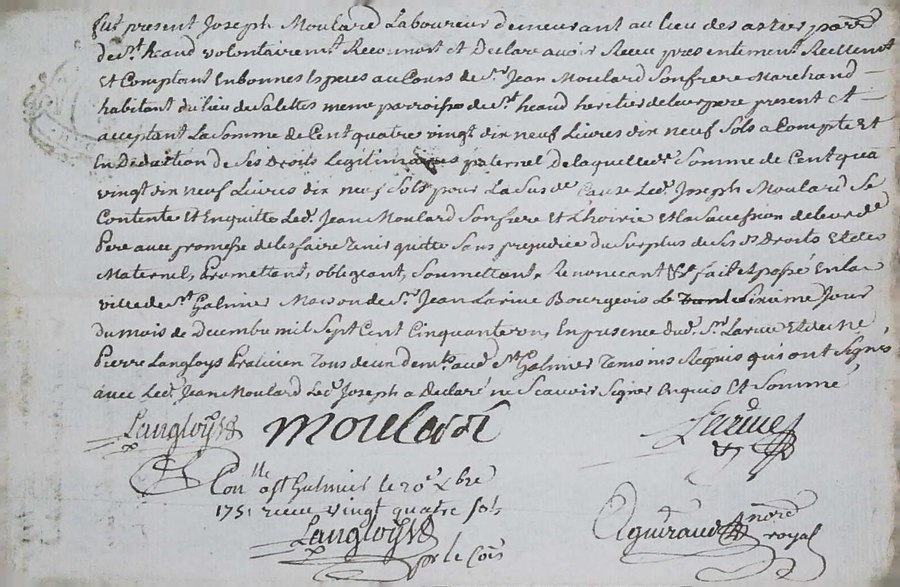 fut present Joseph Moulard Laboureur demeurant au lieu des astres parre
de st heaud volontairemt Reconnoit et Declare avoir Receu presentement Reellemt
Et Comptant En bonnes Especes au Cours de Sr Jean Moulard Son frere Marchand
habitant du lieu de Salettes meme parroisse de st heaud heritier de leur pere present et
acceptant La Somme de Cent quatre vingt dix neuf Livres dix neuf Sols a Compte Et
En Deduction de Ses Droits Legitimaires paternel De laquelle de Somme de Cent qua
vingt dix neuf Livres dix neuf Sols pour La Sus de Cause Led. Joseph Moulard Se
Contente et Enquitte Led. Jean Moulard Son frere Et L'hoirie et la Succession de leur de
Pere avec promesse de les faire Tenir quitte Sans prejudice du Surplus de Ses ds Droits Et des
Maternel, Promettant, obligeant, Soumettant, Renoncant fait et passé En la
ville de st Galmier Maison de Sr Jean Larüe Bourgeois Le Sixieme Jour
du mois de Decembre mil Sept Cent Cinquante un, En presence dud. Sr Larue Et de me
Pierre Langloys Praticien Tous deux demts aud. st Galmier Temoins Requis qui ont Signé
avec Led. Jean Moulard Led. Joseph a Declaré ne Scavoir Signer Enquis Et Sommé
Langloys moulard Larüe
Conlle a st Galmier le 20e xbre
1751 receu vingt quatre sols
Langloys
pr le Cois
Aguiraud nore
royal